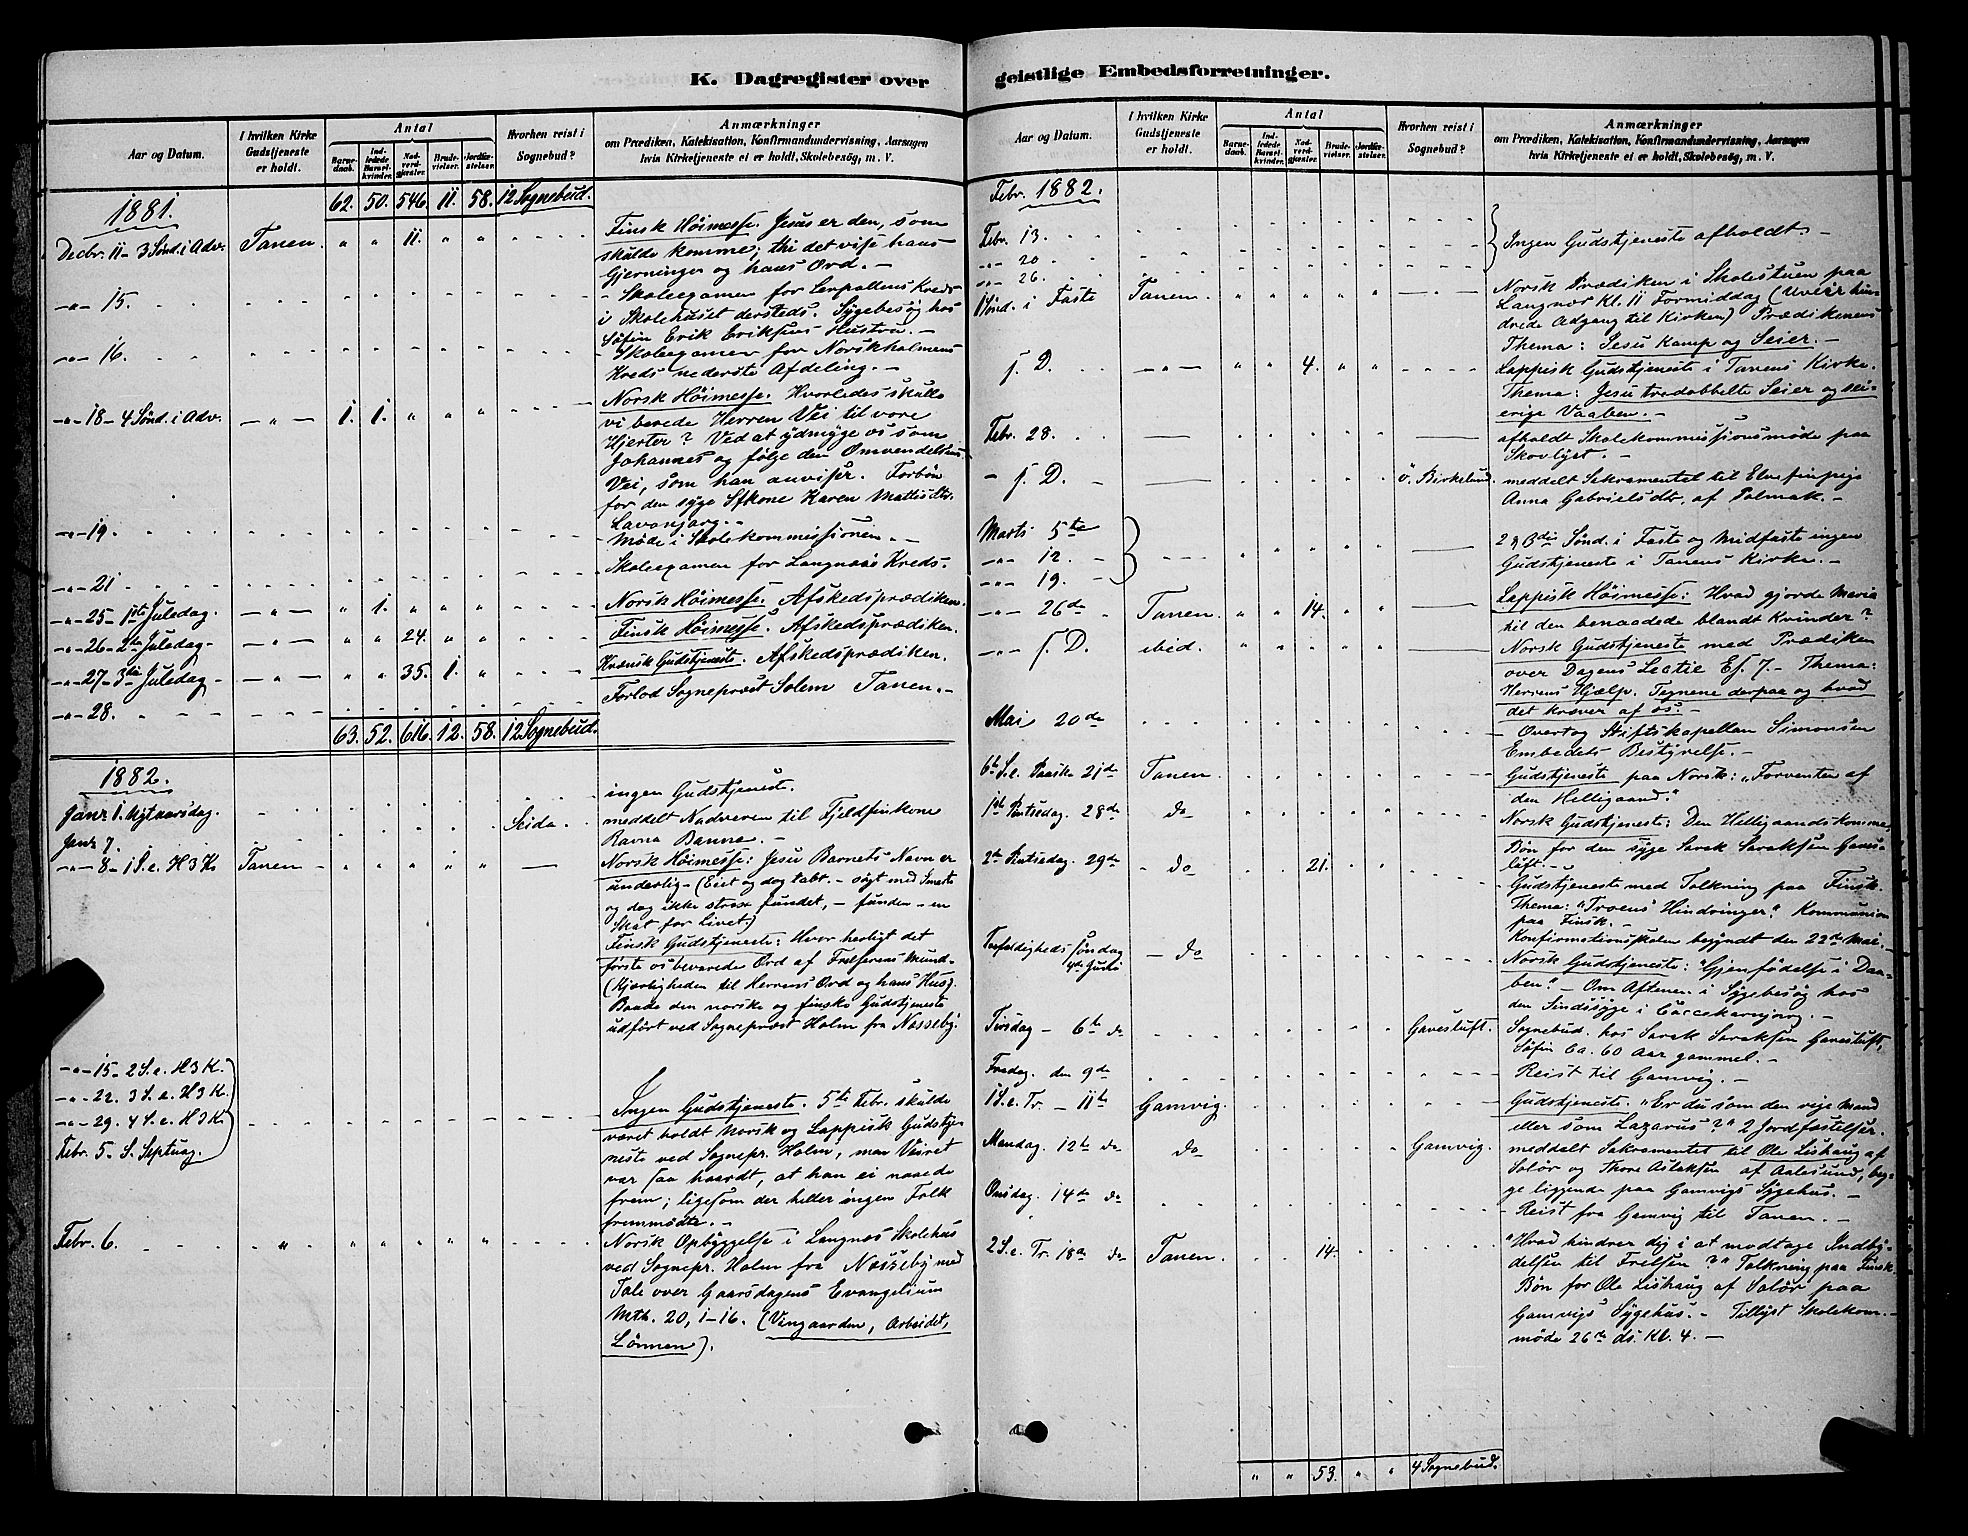 K. Dagregister over
Aar og Datum.
I hvilken Kirke Gudstjeneste er holdt.
Antal
Barnedaab.
Indledede Barselkvinder.
Nadverdgjæster.
Brudevielser.
Jordfæstelser.
Hvorhen reist i Sognebud?
Anmærkninger
om Prædiken, Katekisation, Konfirmandundervisning, Aarsagen
hvis Kirketjeneste ei er holdt, Skolebesög, m. V.
1881. 62. 50. 546. 11. 58. 12 Sognebud.
Decbr. 11 - 3 Sönd. i Adv. Tanen. " " 11. " " Finsk Höimesse. Jesus er den, som
skulde komme; thi det vise hans
Gjerninger og hans Ord. -
-"- 15. - Skoleexamen for Kreds
i Skolehuset dersteds. Sygebesög hos
Söfin Erik Eriksens Hustru. -
-"- 16. - Skoleexamen for Norskholmens
Kreds nederste Afdeling. -
-"- 18 - 4 Sönd. i Adv. -"- 1. 1. " " " Norsk Höimesse. Hvorledes skulle
vi berede Herren Vei til vore
Hjerter? Ved at ydmyge os som
Johannes og fölge den Omvendelsens
Vei, som han anviser. Forbön
for den syge Sfkone Karen Mattisdtr.
Lavonjarg. -
-"- 19. Möde i Skolekommissionen. -
-"- 21 Skoleexamen for Langnæs Kreds.
-"- 25 - 1ste Juledag. -"- " 1. " " " Norsk Höimesse. Afskedsprædiken.
-"- 26 - 2den Juledag -"- " " 24. " " Finsk Höimesse. Afskedsprædiken.
-"- 27 - 3die Juledag -"- " " 35. 1. " Kvænsk Gudstjeneste. Afskedsprædiken.
-"- 28. Forlod Sognepræst Solem Tanen. -
63. 52. 616. 12. 58. 12 Sognebud.
1882.
Janr 1. Nytaarsdag. ingen Gudstjeneste.
Janr 7. Seida. meddelt Nadveren til Fjeldfinkone
Ravna Banna. -
-"- 8 - 1 S. e. H3K Tanen " " " " " Norsk Höimesse: Jesu Barnets Navn er
underlig - (Eiet og dog tabt. - sögt med Smerte
og dog ikke strax fundet, - funden - en
Skat for Livet)
Finsk Gudstjeneste: Hvor herligt det
förste os bevarede Ord af Frelserens Mund -
(Kjærligheden til Herrens Ord og hans Hus).
Baade den norske og finske Gudstjeneste
udfört ved Sognepræst Holm fra Næsseby.
-"- 15 - 2 S. e. H3K.
-"- 22. 3 S. e. H3K.
-"- 29. 4 S. e. H3K
Febr. 5 - S. Septuag. Ingen Gudstjeneste. 5te Febr. skulde
været holdt Norsk og Lappisk Gudstje-
neste ved Sognepr. Holm, men Veiret
var saa haardt, at han ei naaede
frem; ligesom der heller ingen Folk
fremmödte. -
Febr. 6. Norsk Opbyggelse i Langnæs Skolehus
ved Sognepr. Holm fra Næsseby med
Tale over Gaarsdagens Evangelium
Mth. 20, 1-16. (Vingaarden, Arbeidet,
Lönnen).
geistlige Embedsforretninger.
Aar og Datum.
I hvilken Kirke Gudstjeneste er holdt.
Antal
Barnedaab.
Indledede Barselkvinder.
Nadverdgjæster.
Brudevielser.
Jordfæstelser.
Hvorhen reist i Sognebud?
Anmærkninger
om Prædiken, Katekisation, Konfirmandundervisning, Aarsagen
hvis Kirketjeneste ei er holdt, Skolebesög, m. V.
Febr. 1882.
Febr. 13.
-"- 20 Ingen Gudstjeneste afholdt. -
-"- 26.
1 Sönd. i Faste Tanen. " " " " " Norsk Prædiken i Skolestuen paa
Langnæs Kl. 11 Formiddag (Uveir hin-
drede Adgang til Kirken) Prædikenens
Thema: Jesu Kamp og Seier. -
s. D. -"- " " 4. " " Lappisk Gudstjeneste i Tanens Kirke.
Thema: Jesu tredobbelte Seier og sei-
erige Vaaben. -
Febr. 28. afholdt Skolekommissionsmöde paa
Skovlyst. -
- s. D. - ö. Birkelund. meddelt Sakramentet til Elvefinpige
Anna Gabrielsdtr. af Polmak. -
Marts 5te
-"- 12. 2 & 3die Sönd. i Faste og Midfaste ingen
Gudstjeneste i Tanens Kirke. -
-"- 19.
-"- 26de Tanen " " 14. " " Lappisk Höimesse: Hvad gjorde Maria
til den benaadede blandt Kvinder?
-"- s. D. ibid. " " " " " Norsk Gudstjeneste med Prædiken
over Dagens Lectie Es. 7. - Thema:
Herrens Hjælp. Tegnene derpaa og hvad
det kræver af os. -
Mai 20de - Overtog Stiftskapellan Simonsen
Embedets Bestyrelse. -
6te S. e. Paaske 21de Tanen Gudstjeneste paa Norsk: "Forventen af
den Helligaand."
1ste Pintsedag. 28de do Norsk Gudstjeneste: Den Helligaands komme,
Bön for den syge Sarak Saraksen Gaves-
luft. -
2den Pintsedag. 29de do 21. Gudstjeneste med Tolkning paa Finsk.
Thema: "Troens Hindringer." Kommunion
paa Finsk. -
Konfirmationsskolen begyndt den 22de Mai. -
Trefoldigheds söndag
4de Juni - do Norsk Gudstjeneste: "Gjenfödelse i Daa-
ben". - Om Aftenen i Sygebesög hos
den Sindssyge i -
Tirsdag - 6te do Gavesluft. Sognebud. hos Sarak Saraksen Gavesluft,
Söfin Ca. 60 Aar gammel. -
Fredag. den 9de Reist til Gamvig. -
1 S. e. Tr. - 11te Gamvig. Gudstjeneste. "Er du som den rige Mand
eller som Lazarus?" 2 Jordfæstelser.
Mandag. 12te do do Gamvig. meddelt Sakramentet til Ole Lishaug af
Solör og Thore Aslaksen af Aalesund, beg-
ge liggende paa Gamvigs Sygehus. -
Onsdag. 14de do Reist fra Gamvig til Tanen. -
2 S. e. Tr. 18de do Tanen. 14. "Hvad hindrer dig i at modtage Indby-
delsen til Frelsen?" Tolkning paa Finsk.
Bön for Ole Lishaug af Solör paa
Gamvigs Sygehus. - Tillyst Skolekom.-
möde 26de ds. Kl. 4. -
" " 53. " " 4 Sognebud.